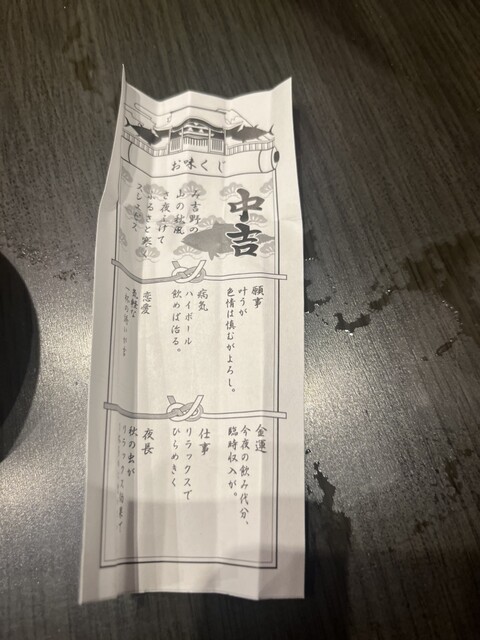 お味くじ
中吉
み吉野の
山の秋風
さ夜ふけて
ふるさと寒く
願事
叶うが
色情は慎むがよろし。
病気
ハイボール
飲めば治る。
恋愛
気軽な
金運
今夜の飲み代分、
臨時収入が。
仕事
リラックスで
ひらめきく
夜長
秋の虫が
リラックス効果で